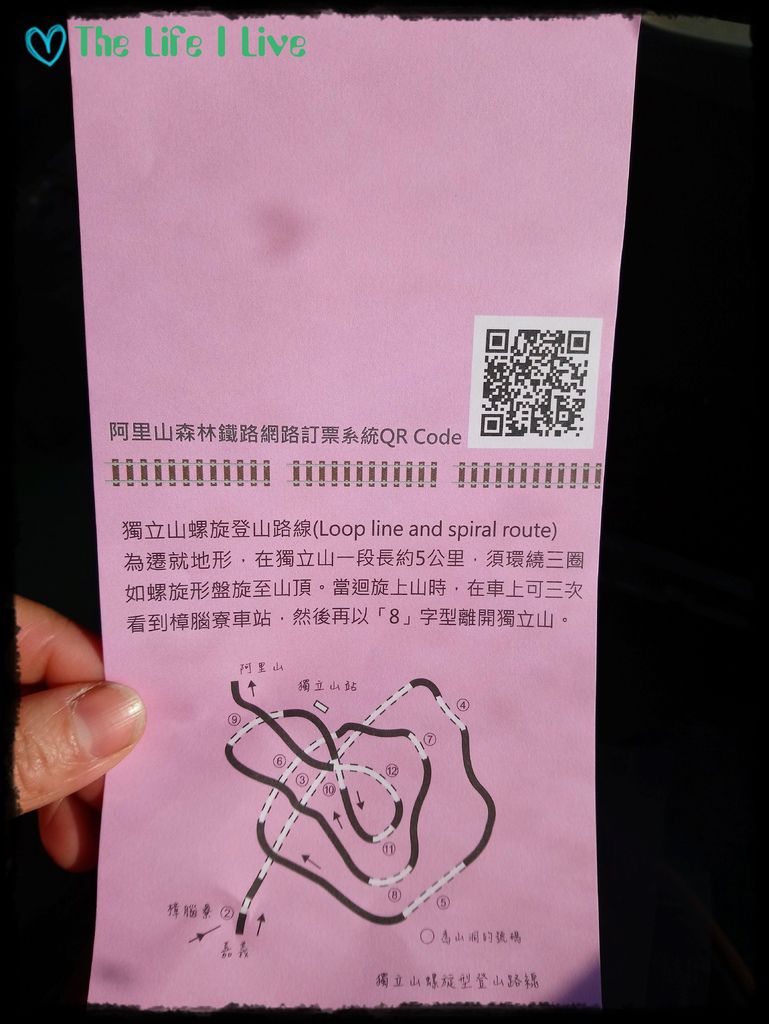 The Life I Live
阿里山森林鐵路網路訂票系統QR Code
獨立山螺旋登山路線(Loop line and spiral route)
為遷就地形，在獨立山一段長約5公里，須環繞三圈
如螺旋形盤旋至山頂。當迴旋上山時，在車上可三次
看到樟腦寮車站，然後再以「8」字型離開獨立山。
阿里山
獨立山站
④
⑨
⑦
⑥
⑫
③
⑩
⑪
⑧
⑤
樟腦寮 ②
○為山洞的號碼
嘉義
獨立山螺旋型登山路線